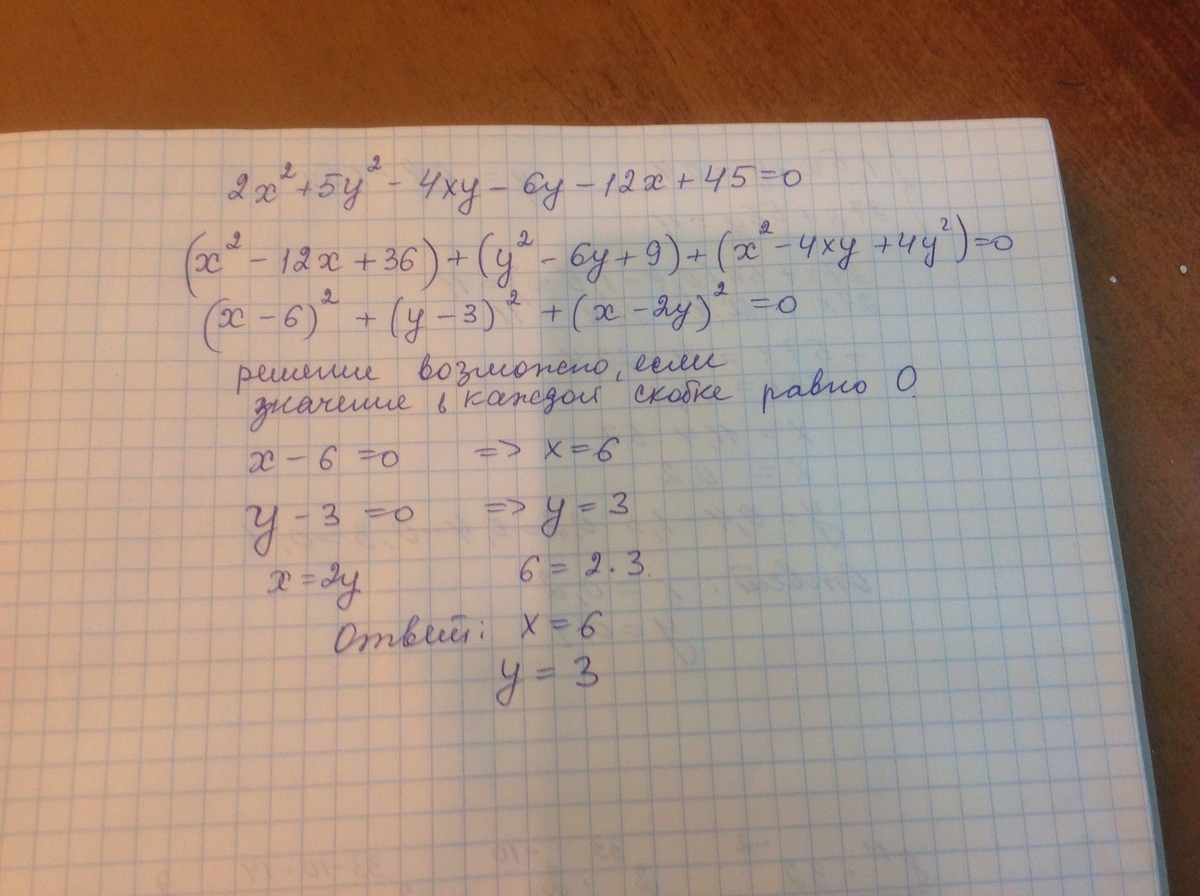 2x² + 5y² - 4xy - 6y - 12x + 45 = 0
(x² - 12x + 36) + (y² - 6y + 9) + (x² - 4xy + 4y²) = 0
(x - 6)² + (y - 3)² + (x - 2y)² = 0
решение возможно, если
значение в каждой скобке равно 0.
x - 6 = 0 => x = 6
y - 3 = 0 => y = 3
x = 2y 6 = 2 · 3.
Ответ: x = 6
y = 3